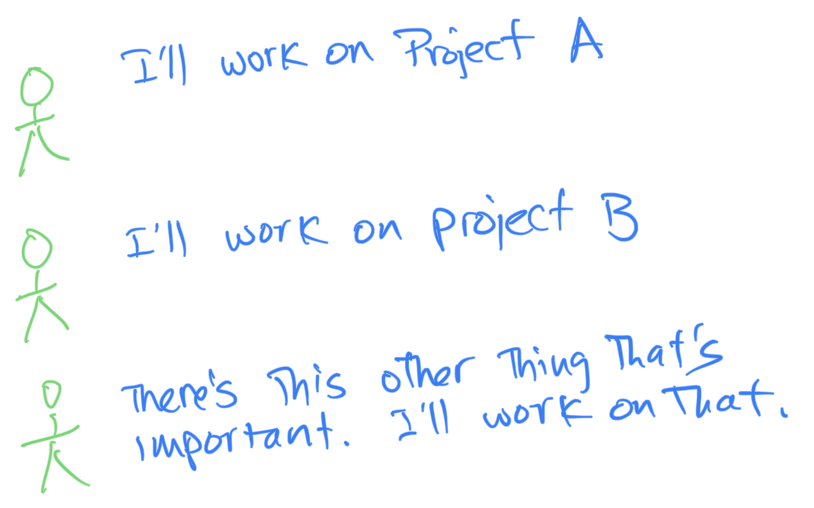 I'll work on Project A
I'll work on project B
There's This other Thing That's
important. I'll work on That.